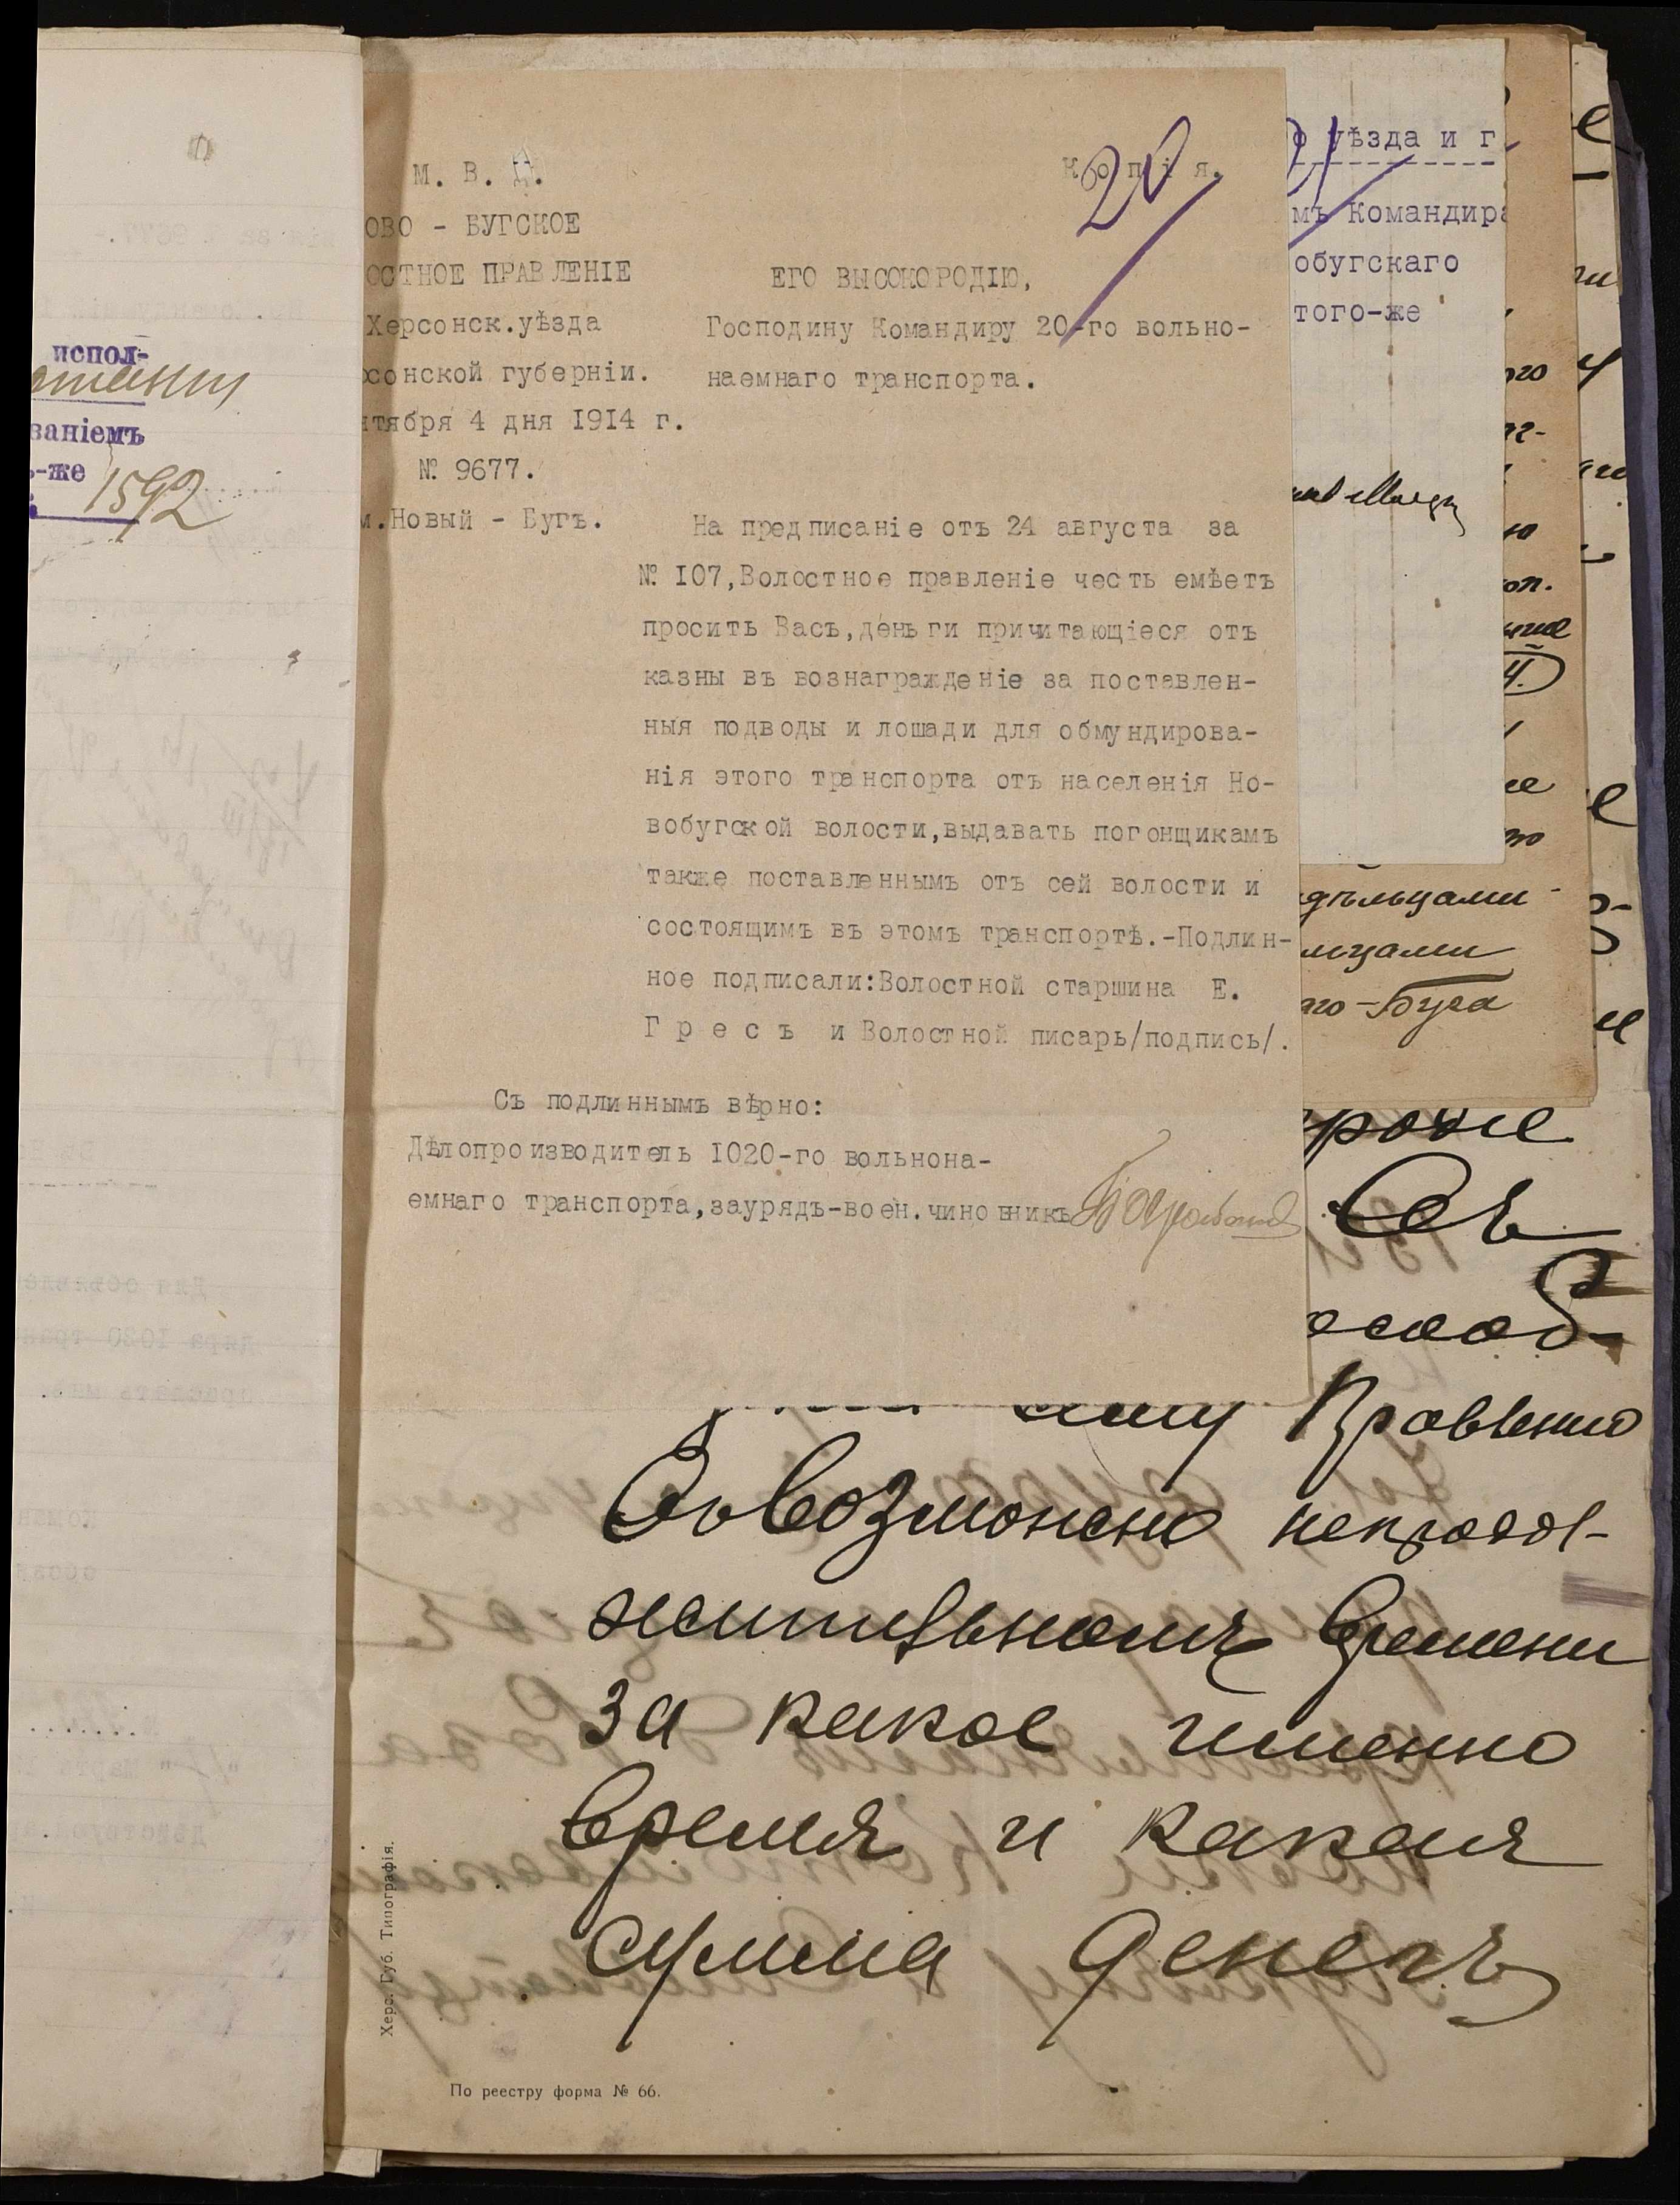 испол-
ваніемъ
-же
1592
М. В. Д.
Копія.
20
ОВО - БУГСКОЕ
ОСТНОЕ ПРАВЛЕНІЕ
Херсонск.уѣзда
рсонской губерніи.
нтября 4 дня 1914 г.
№ 9677.
м.Новый - Бугъ.
ЕГО ВЫСОКОРОДІЮ,
Господину Командиру 20-го вольно-
наемнаго транспорта.
На предписаніе отъ 24 августа за
№ 107,Волостное правленіе честь емѣетъ
просить Васъ,деньги причитающіеся отъ
казны въ вознагражденіе за поставлен-
ныя подводы и лошади для обмундирова-
нія этого транспорта отъ населенія Но-
вобугской волости,выдавать погонщикамъ
также поставленнымъ отъ сей волости и
состоящимъ въ этомъ транспортѣ.-Подлин-
ное подписали:Волостной старшина Е.
Г р е с ъ и Волостной писарь/подпись/.
Съ подлиннымъ вѣрно:
Дѣлопроизводитель 1020-го вольнона-
емнаго транспорта,заурядъ-воен.чиновникъ
уѣзда и г.
мъ Командира
обугскаго
того-же
дѣльцами
льцами
аго-Буга
Съ
особ-
Правленію
въ возможно непродол-
жительномъ времени
за какое именно
время и какая
сумма денегъ
Херс. Губ. Типографія.
По реестру форма № 66.